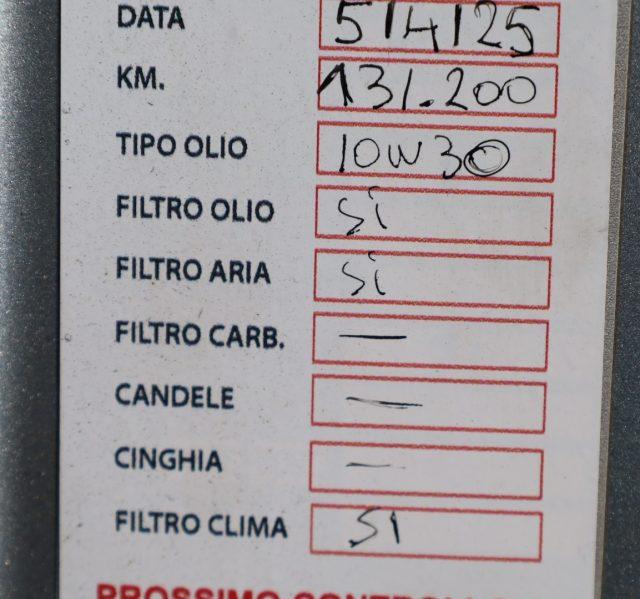 DATA 5/4/25
KM. 131.200
TIPO OLIO 10W30
FILTRO OLIO Si
FILTRO ARIA Si
FILTRO CARB. —
CANDELE —
CINGHIA —
FILTRO CLIMA Si
PROSSIMO